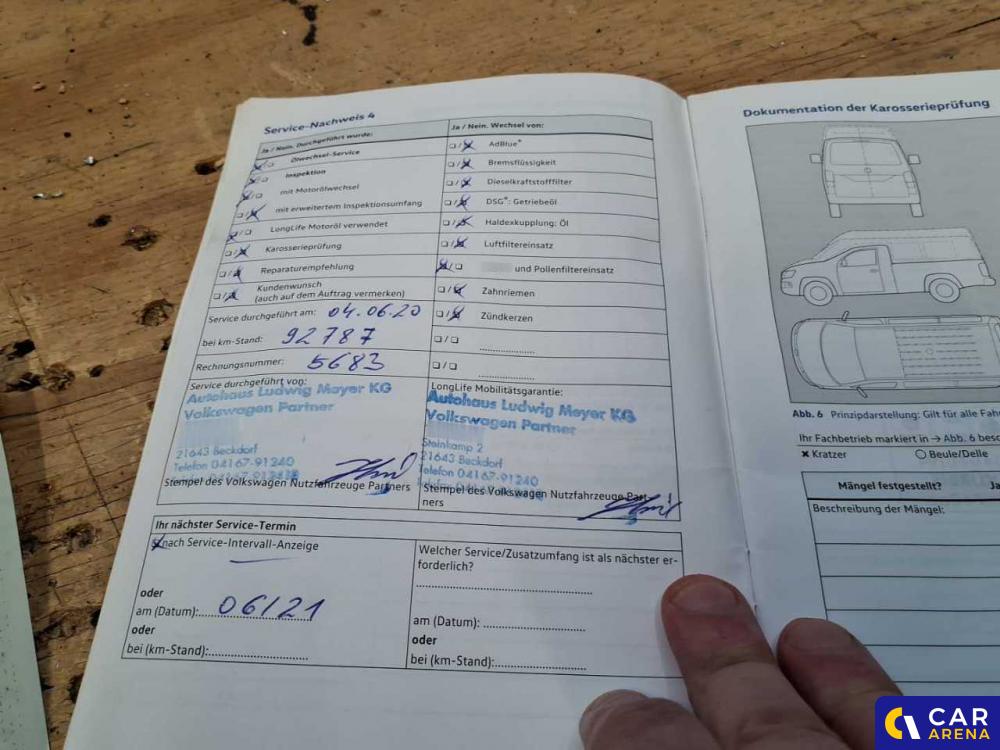 Service-Nachweis 4
Ja / Nein. Durchgeführt wurde:
Ölwechsel-Service
Inspektion
mit Motorölwechsel
mit erweitertem Inspektionsumfang
LongLife Motoröl verwendet
Karosserieprüfung
Reparaturempfehlung
Kundenwunsch
(auch auf dem Auftrag vermerken)
Service durchgeführt am: 04.06.20
bei km-Stand: 92787
Rechnungsnummer: 5683
Service durchgeführt von:
Autohaus Ludwig Meyer KG
Volkswagen Partner
21643 Beckdorf
Telefon 04167-91240
Stempel des Volkswagen Nutzfahrzeuge Partners
Ja / Nein. Wechsel von:
AdBlue®
Bremsflüssigkeit
Dieselkraftstofffilter
DSG®: Getriebeöl
Haldexkupplung: Öl
Luftfiltereinsatz
und Pollenfiltereinsatz
Zahnriemen
Zündkerzen
LongLife Mobilitätsgarantie:
Autohaus Ludwig Meyer KG
Volkswagen Partner
Steinkamp 2
21643 Beckdorf
Telefon 04167-91240
Stempel des Volkswagen Nutzfahrzeuge Part-
ners
Ihr nächster Service-Termin
nach Service-Intervall-Anzeige
oder
am (Datum): 06/21
oder
bei (km-Stand):
Welcher Service/Zusatzumfang ist als nächster er-
forderlich?
am (Datum):
oder
bei (km-Stand):
Dokumentation der Karosserieprüfung
Abb. 6 Prinzipdarstellung: Gilt für alle Fah
Ihr Fachbetrieb markiert in → Abb. 6 besc
× Kratzer
○ Beule/Delle
Mängel festgestellt? Ja
Beschreibung der Mängel:
CAR
ARENA